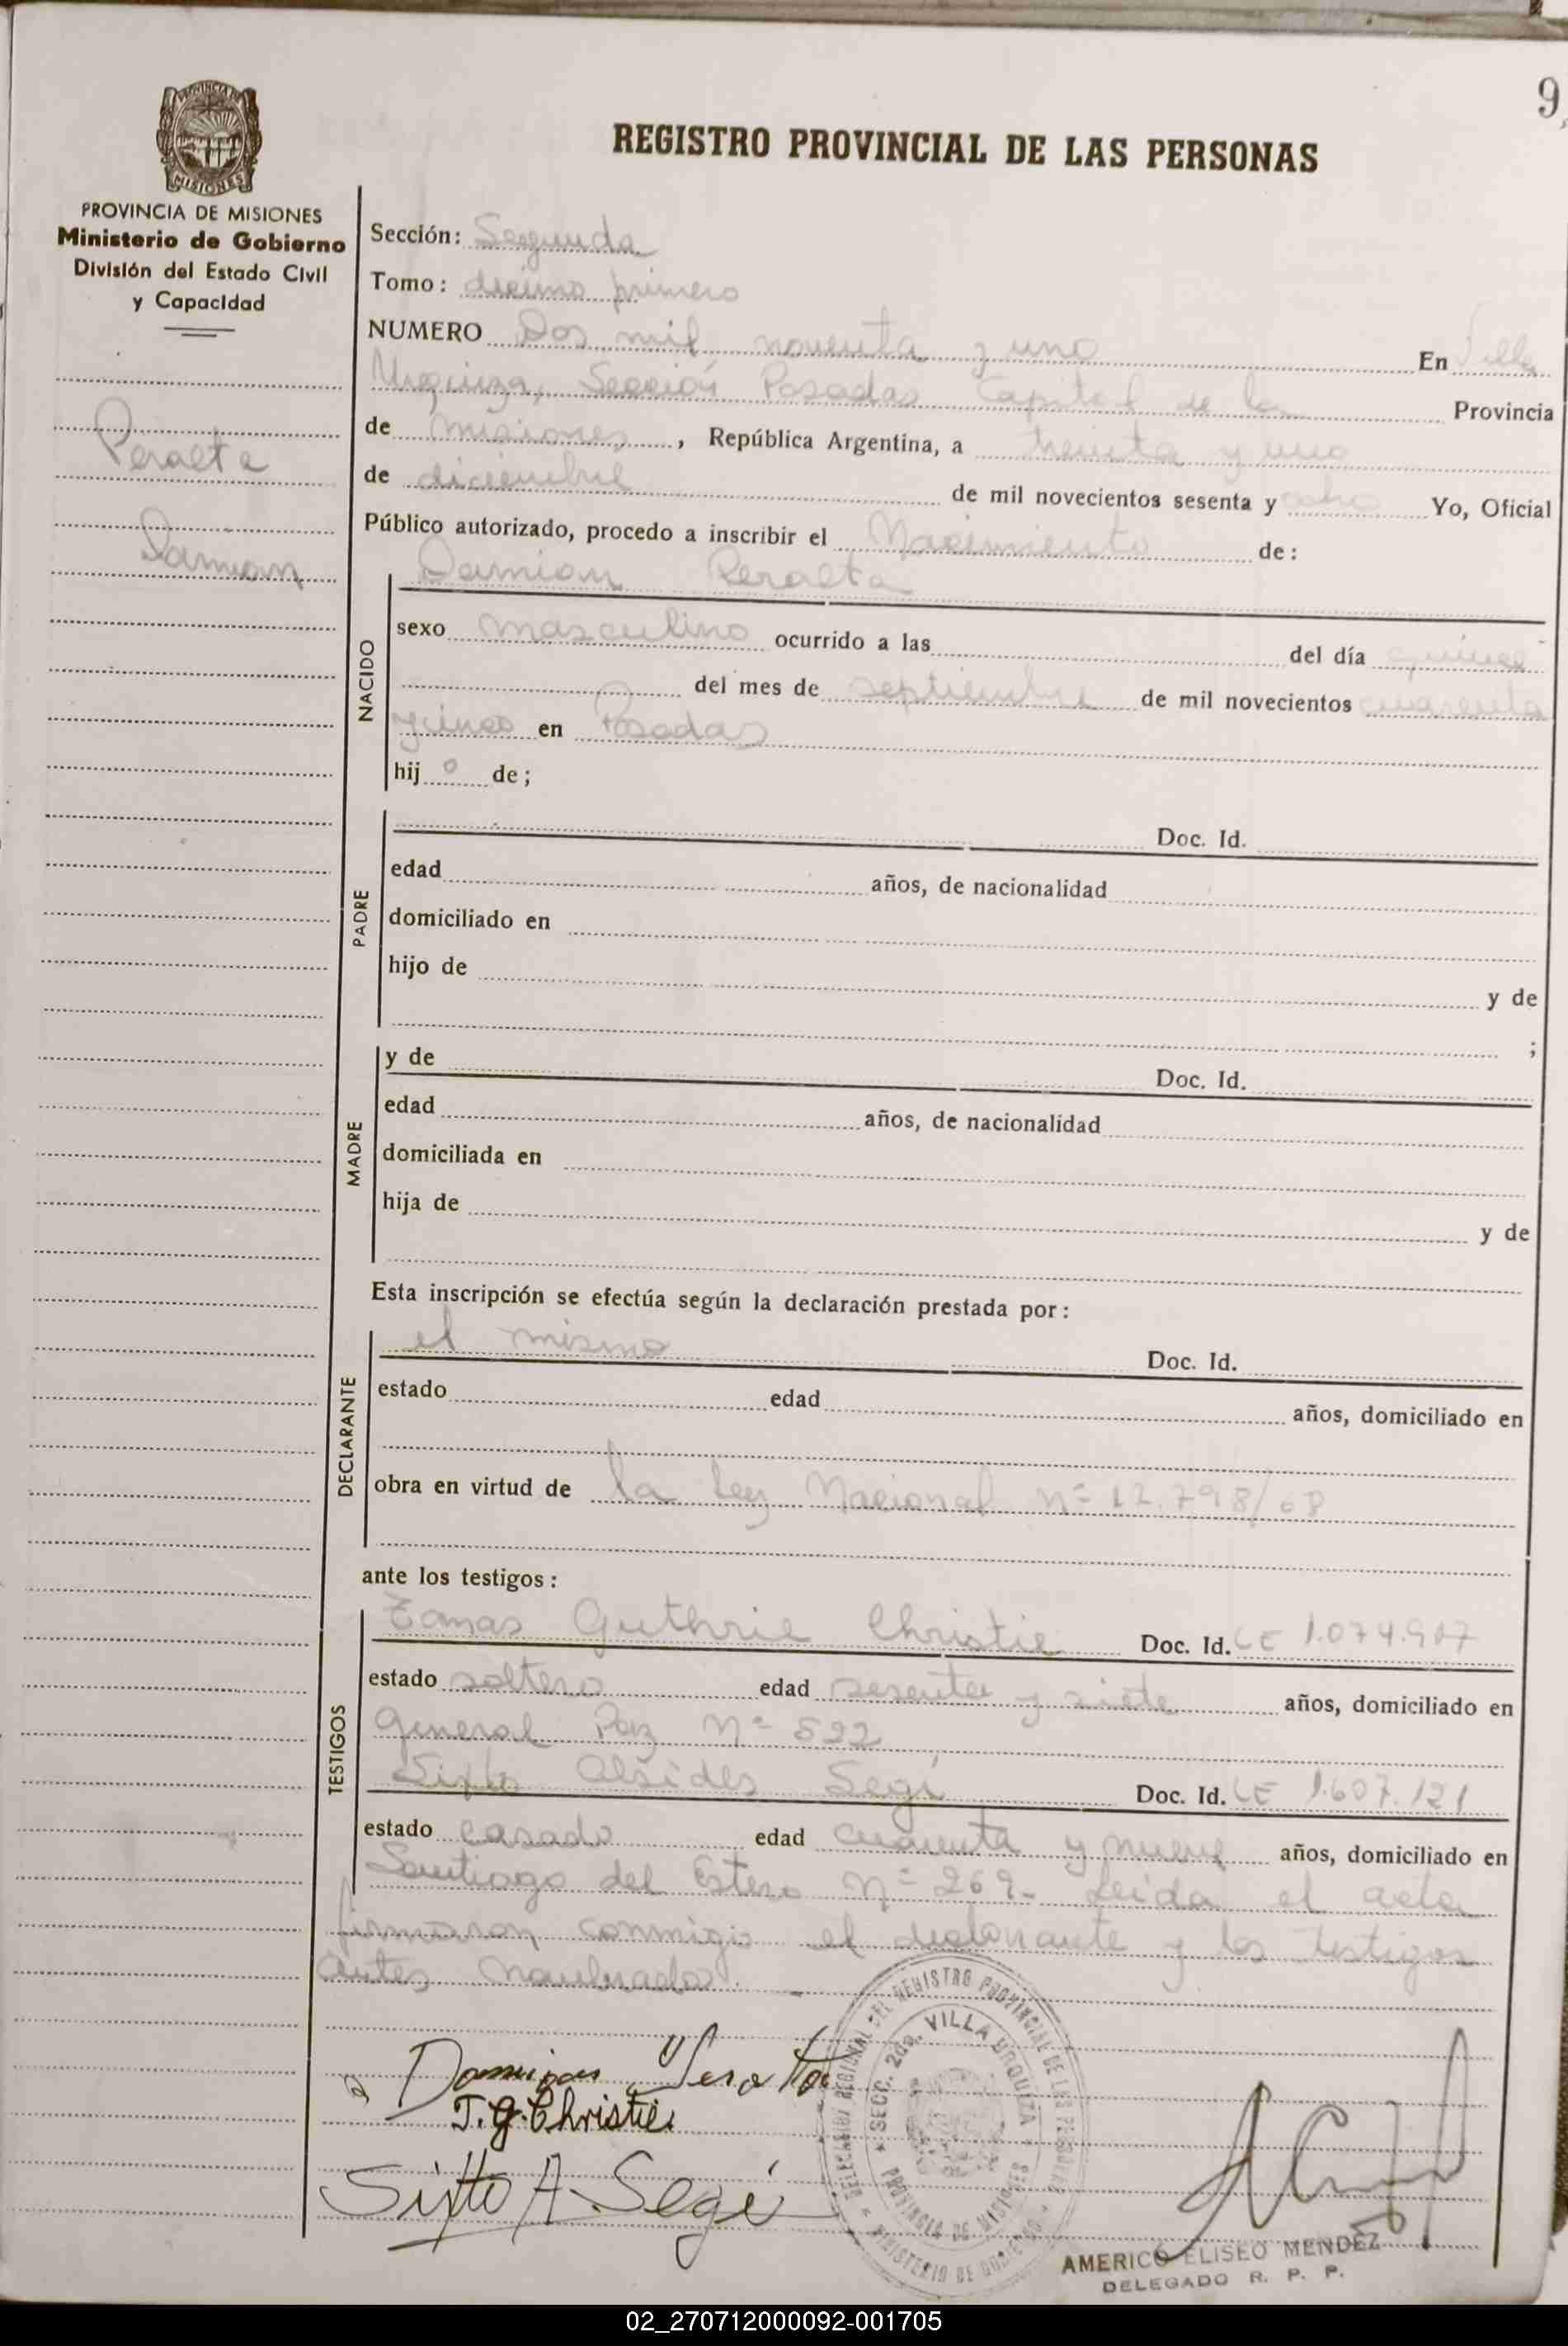 9
REGISTRO PROVINCIAL DE LAS PERSONAS
MISIONES
PROVINCIA DE MISIONES
Ministerio de Gobierno
División del Estado Civil
y Capacidad
Peralta
Damian
Sección: Segunda
Tomo: decimo primero
NUMERO Dos mil noventa y uno En Villa
Urquiza, Sección Posadas Capital de la Provincia
de Misiones, República Argentina, a treinta y uno
de diciembre de mil novecientos sesenta y ocho Yo, Oficial
Público autorizado, procedo a inscribir el Nacimiento de:
Damian Peralta
NACIDO
sexo masculino ocurrido a las del día quince
del mes de septiembre de mil novecientos cuarenta
y cinco en Posadas
hijo de;
PADRE
Doc. Id.
edad años, de nacionalidad
domiciliado en
hijo de y de
;
MADRE
y de Doc. Id.
edad años, de nacionalidad
domiciliada en
hija de y de
Esta inscripción se efectúa según la declaración prestada por:
DECLARANTE
el mismo Doc. Id.
estado edad años, domiciliado en
obra en virtud de la ley Nacional nº 17.798/68
ante los testigos:
TESTIGOS
Tomas Guthrie Christie Doc. Id. LE 1.074.907
estado soltero edad sesenta y siete años, domiciliado en
General Paz Nº 522
Sixto Alsides Segi Doc. Id. LE 1.607.121
estado casado edad cuarenta y nueve años, domiciliado en
Santiago del Estero Nº 269- Leida el acta
firmaron conmigo el declarante y los testigos
antes nombrados.
Damian Peralta
T. G. Christie
Sixto A. Segi
DELEGACION REGIONAL DEL REGISTRO PROVINCIAL DE LAS PERSONAS
SECC. 2da. VILLA URQUIZA
PROVINCIA DE MISIONES
MINISTERIO DE GOBIERNO
AMERICO ELISEO MENDEZ
DELEGADO R. P. P.
02_270712000092-001705